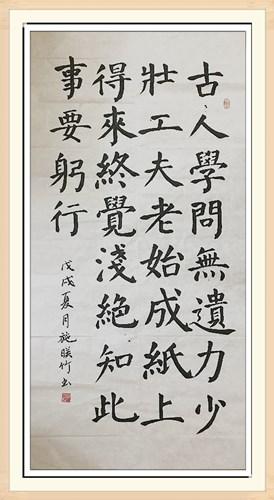 古人學問無遺力少
壯工夫老始成紙上
得來終覺淺絕知此
事要躬行
戊戌夏月施竹书